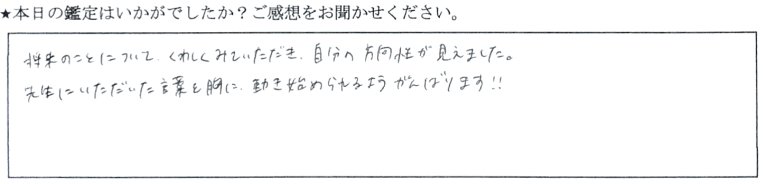 ★本日の鑑定はいかがでしたか？ご感想をお聞かせください。
将来のことについて、くわしくみていただき、自分の方向性が見えました。
先生にいただいた言葉を胸に、動き始められるようがんばります!!